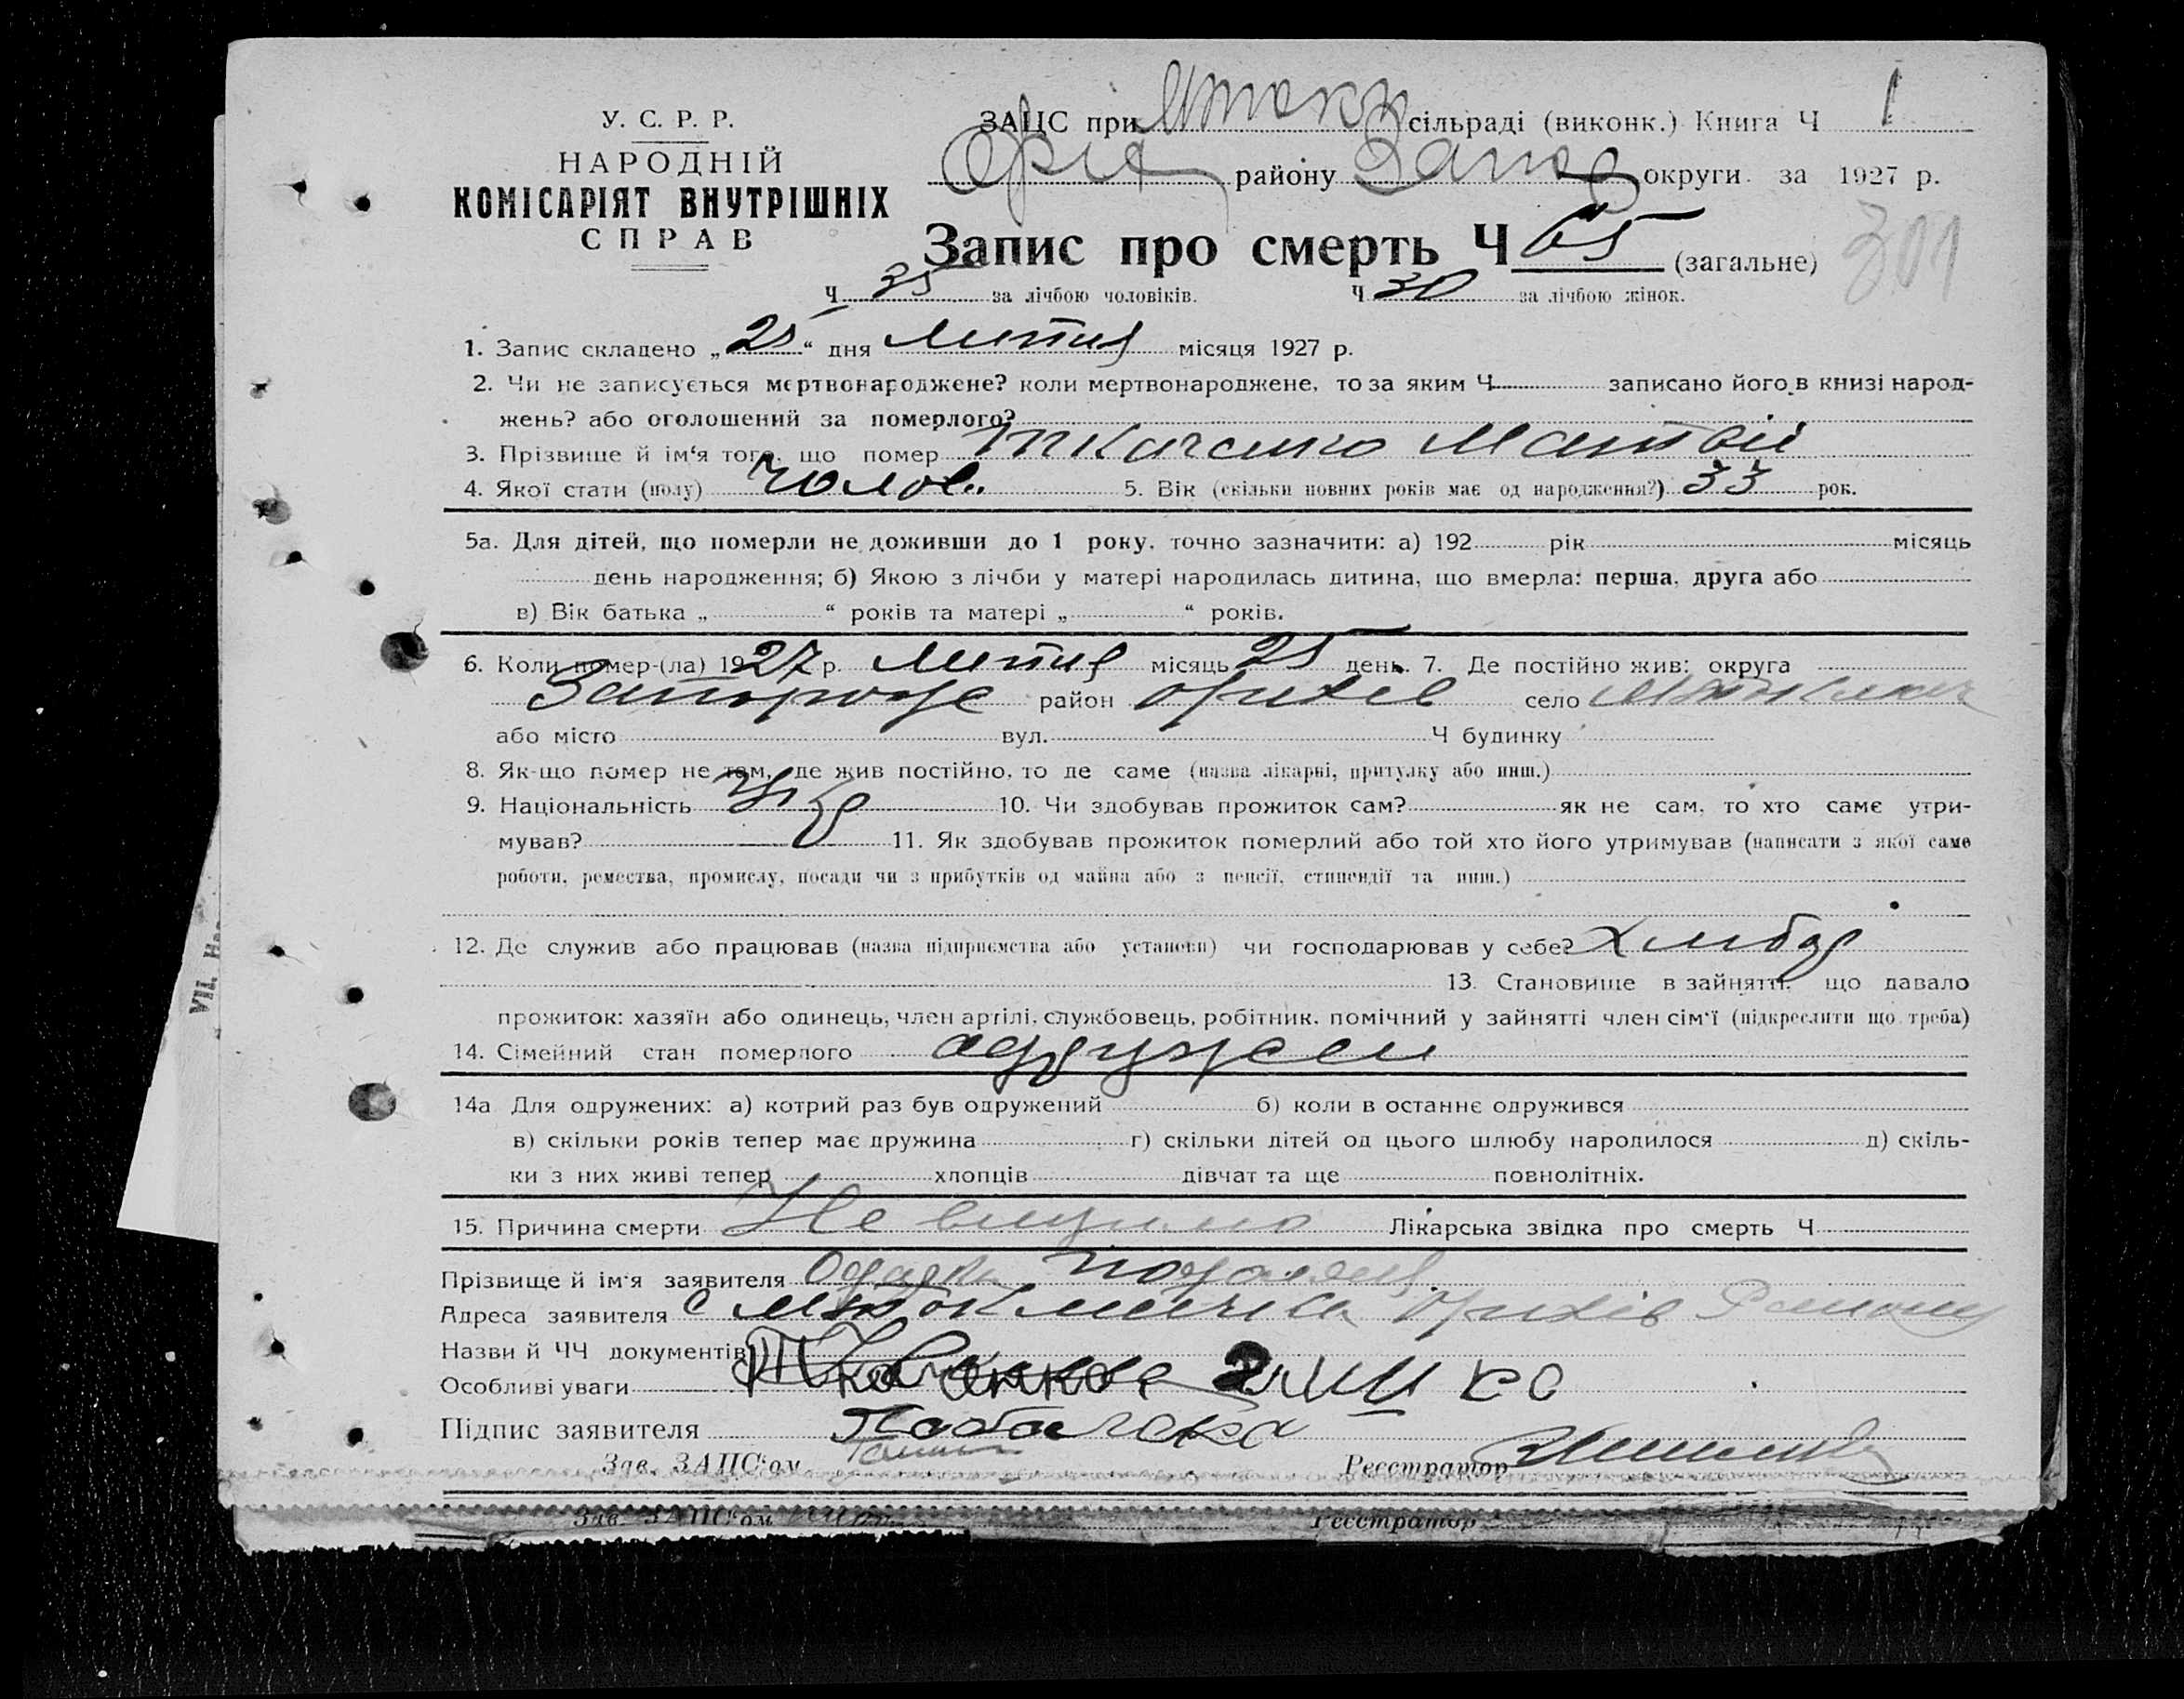 У. С. Р. Р.
НАРОДНІЙ
КОМІСАРІЯТ ВНУТРІШНІХ
СПРАВ
ЗАЦС при сільраді (виконк.) Книга Ч 1
Оріх району Запор округи за 1927 р.
Запис про смерть Ч 65 (загальне) 301
Ч 35 за лічбою чоловіків. Ч 30 за лічбою жінок.
1. Запис складено „25“ дня Липня місяця 1927 р.
2. Чи не записується мертвонароджене? коли мертвонароджене, то за яким Ч записано його в книзі народ-
жень? або оголошений за померлого?
3. Прізвище й ім‘я того, що помер Ткаченко Матвій
4. Якої стати (полу) Чолов. 5. Вік (скільки повних років має од народження?) 33 рок.
5а. Для дітей, що померли не доживши до 1 року, точно зазначити: а) 192 рік місяць
день народження; б) Якою з лічби у матері народилась дитина, що вмерла: перша, друга або
в) Вік батька „ “ років та матері „ “ років.
6. Коли помер-(ла) 1927 р. Липня місяць 25 день. 7. Де постійно жив: округа
Запорожс район Оріхів село
або місто вул. Ч будинку
8. Як-що помер не там, де жив постійно, то де саме (назва лікарні, притулку або инш.)
9. Національність Укр 10. Чи здобував прожиток сам? як не сам, то хто саме утри-
мував? 11. Як здобував прожиток померлий або той хто його утримував (написати з якої саме
роботи, ремества, промислу, посади чи з прибутків од майна або з пенсії, стипендії та инш.)
12. Де служив або працював (назва підприємства або установи) чи господарював у себе? Хлибор
13. Становище в зайнятті, що давало
прожиток: хазяїн або одинець, член артілі, службовець, робітник, помічний у зайнятті член сім‘ї (підкреслити що треба)
14. Сімейний стан померлого одружен
14а Для одружених: а) котрий раз був одружений б) коли в останнє одружився
в) скільки років тепер має дружина г) скільки дітей од цього шлюбу народилося д) скіль-
ки з них живі тепер хлопців дівчат та ще повнолітніх.
15. Причина смерти Не Лікарська звідка про смерть Ч
Прізвище й ім‘я заявителя
Адреса заявителя с Оріхів Району
Назви й ЧЧ документів
Особливі уваги
Підпис заявителя
Зав. ЗАЦС‘ом Реєстратор
Зав. ЗАЦС‘ом Реєстратор